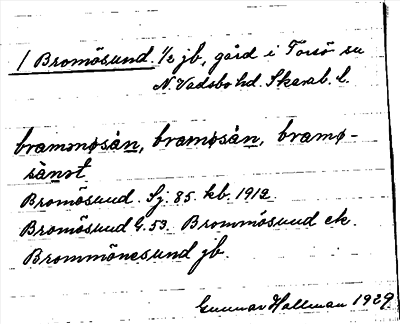 1 Bromösund. 1/2 jb, gård i Torsö sn
N. Vadsbo hd. Skarab. l.
brammøsån, bramøsån, bramø-
sånt
Bromösund. Sj. 85. kb. 1912
Bromösund G. 53. Brommösund ek.
Brommönesund jb.
Gunnar Hallman 1929